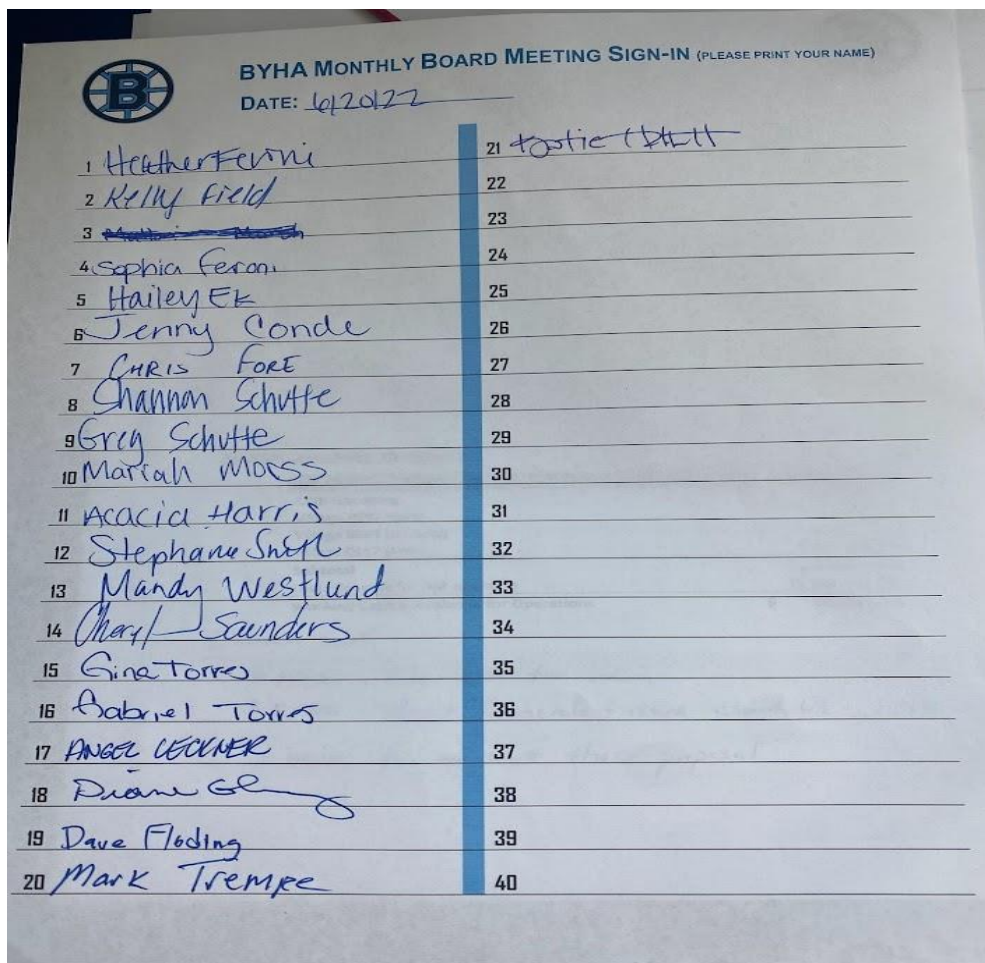 B
BYHA MONTHLY BOARD MEETING SIGN-IN (PLEASE PRINT YOUR NAME)
DATE: 6/20/22
1 Heather Ferrni
2 Kelly Field
3
4 Sophia Feroni
5 Hailey Ek
6 Jenny Conde
7 CHRIS FORE
8 Shannon Schutte
9 Greg Schutte
10 Mariah Morss
11 Acacia Harris
12 Stephanie Smith
13 Mandy Westlund
14 Cheryl Saunders
15 Gina Torres
16 Gabriel Torres
17 ANGEL LECKNER
18 Diane
19 Dave Floding
20 Mark Trempe
21
22
23
24
25
26
27
28
29
30
31
32
33
34
35
36
37
38
39
40